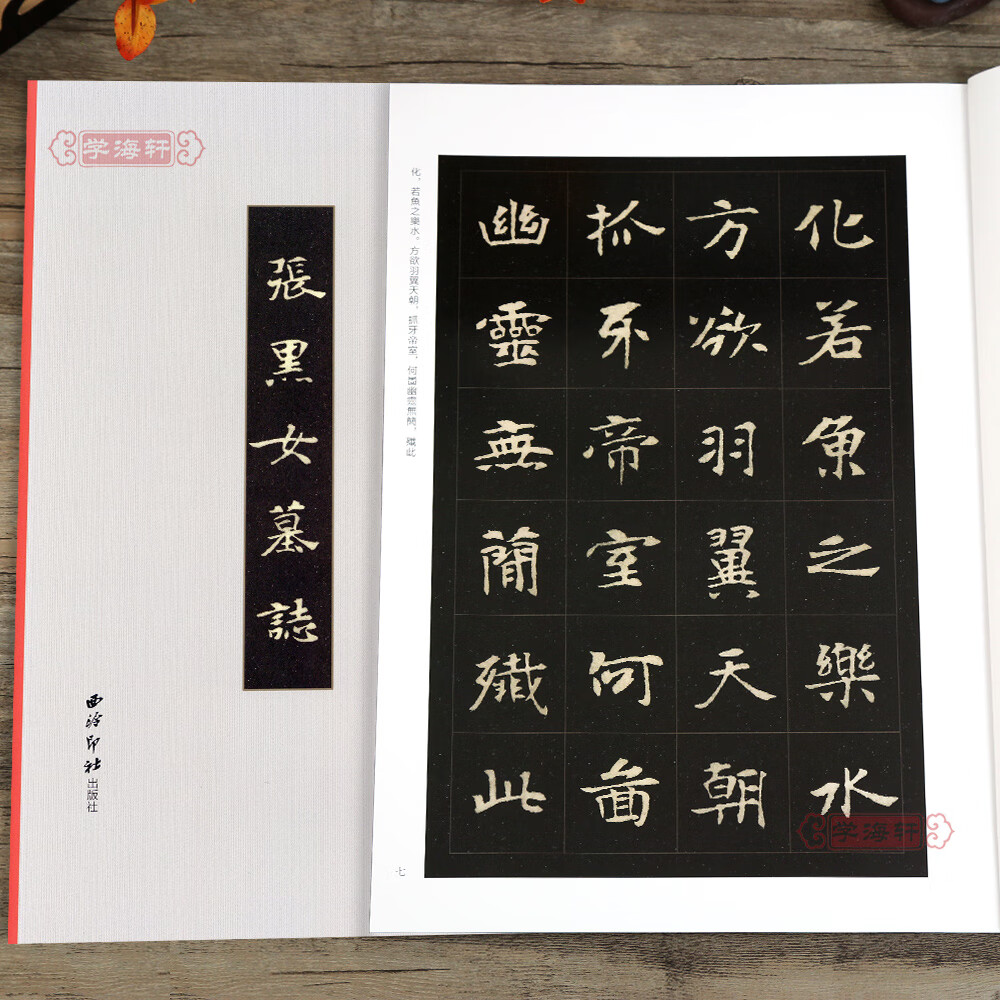 学海轩
張黑女墓誌
西泠印社
出版社
化若魚之樂水
方欲羽翼天朝
抓牙帝室何啚
幽靈無簡殲此
化，若魚之樂水。方欲羽翼天朝，抓牙帝室，何啚幽靈無簡，殲此
七
学海轩